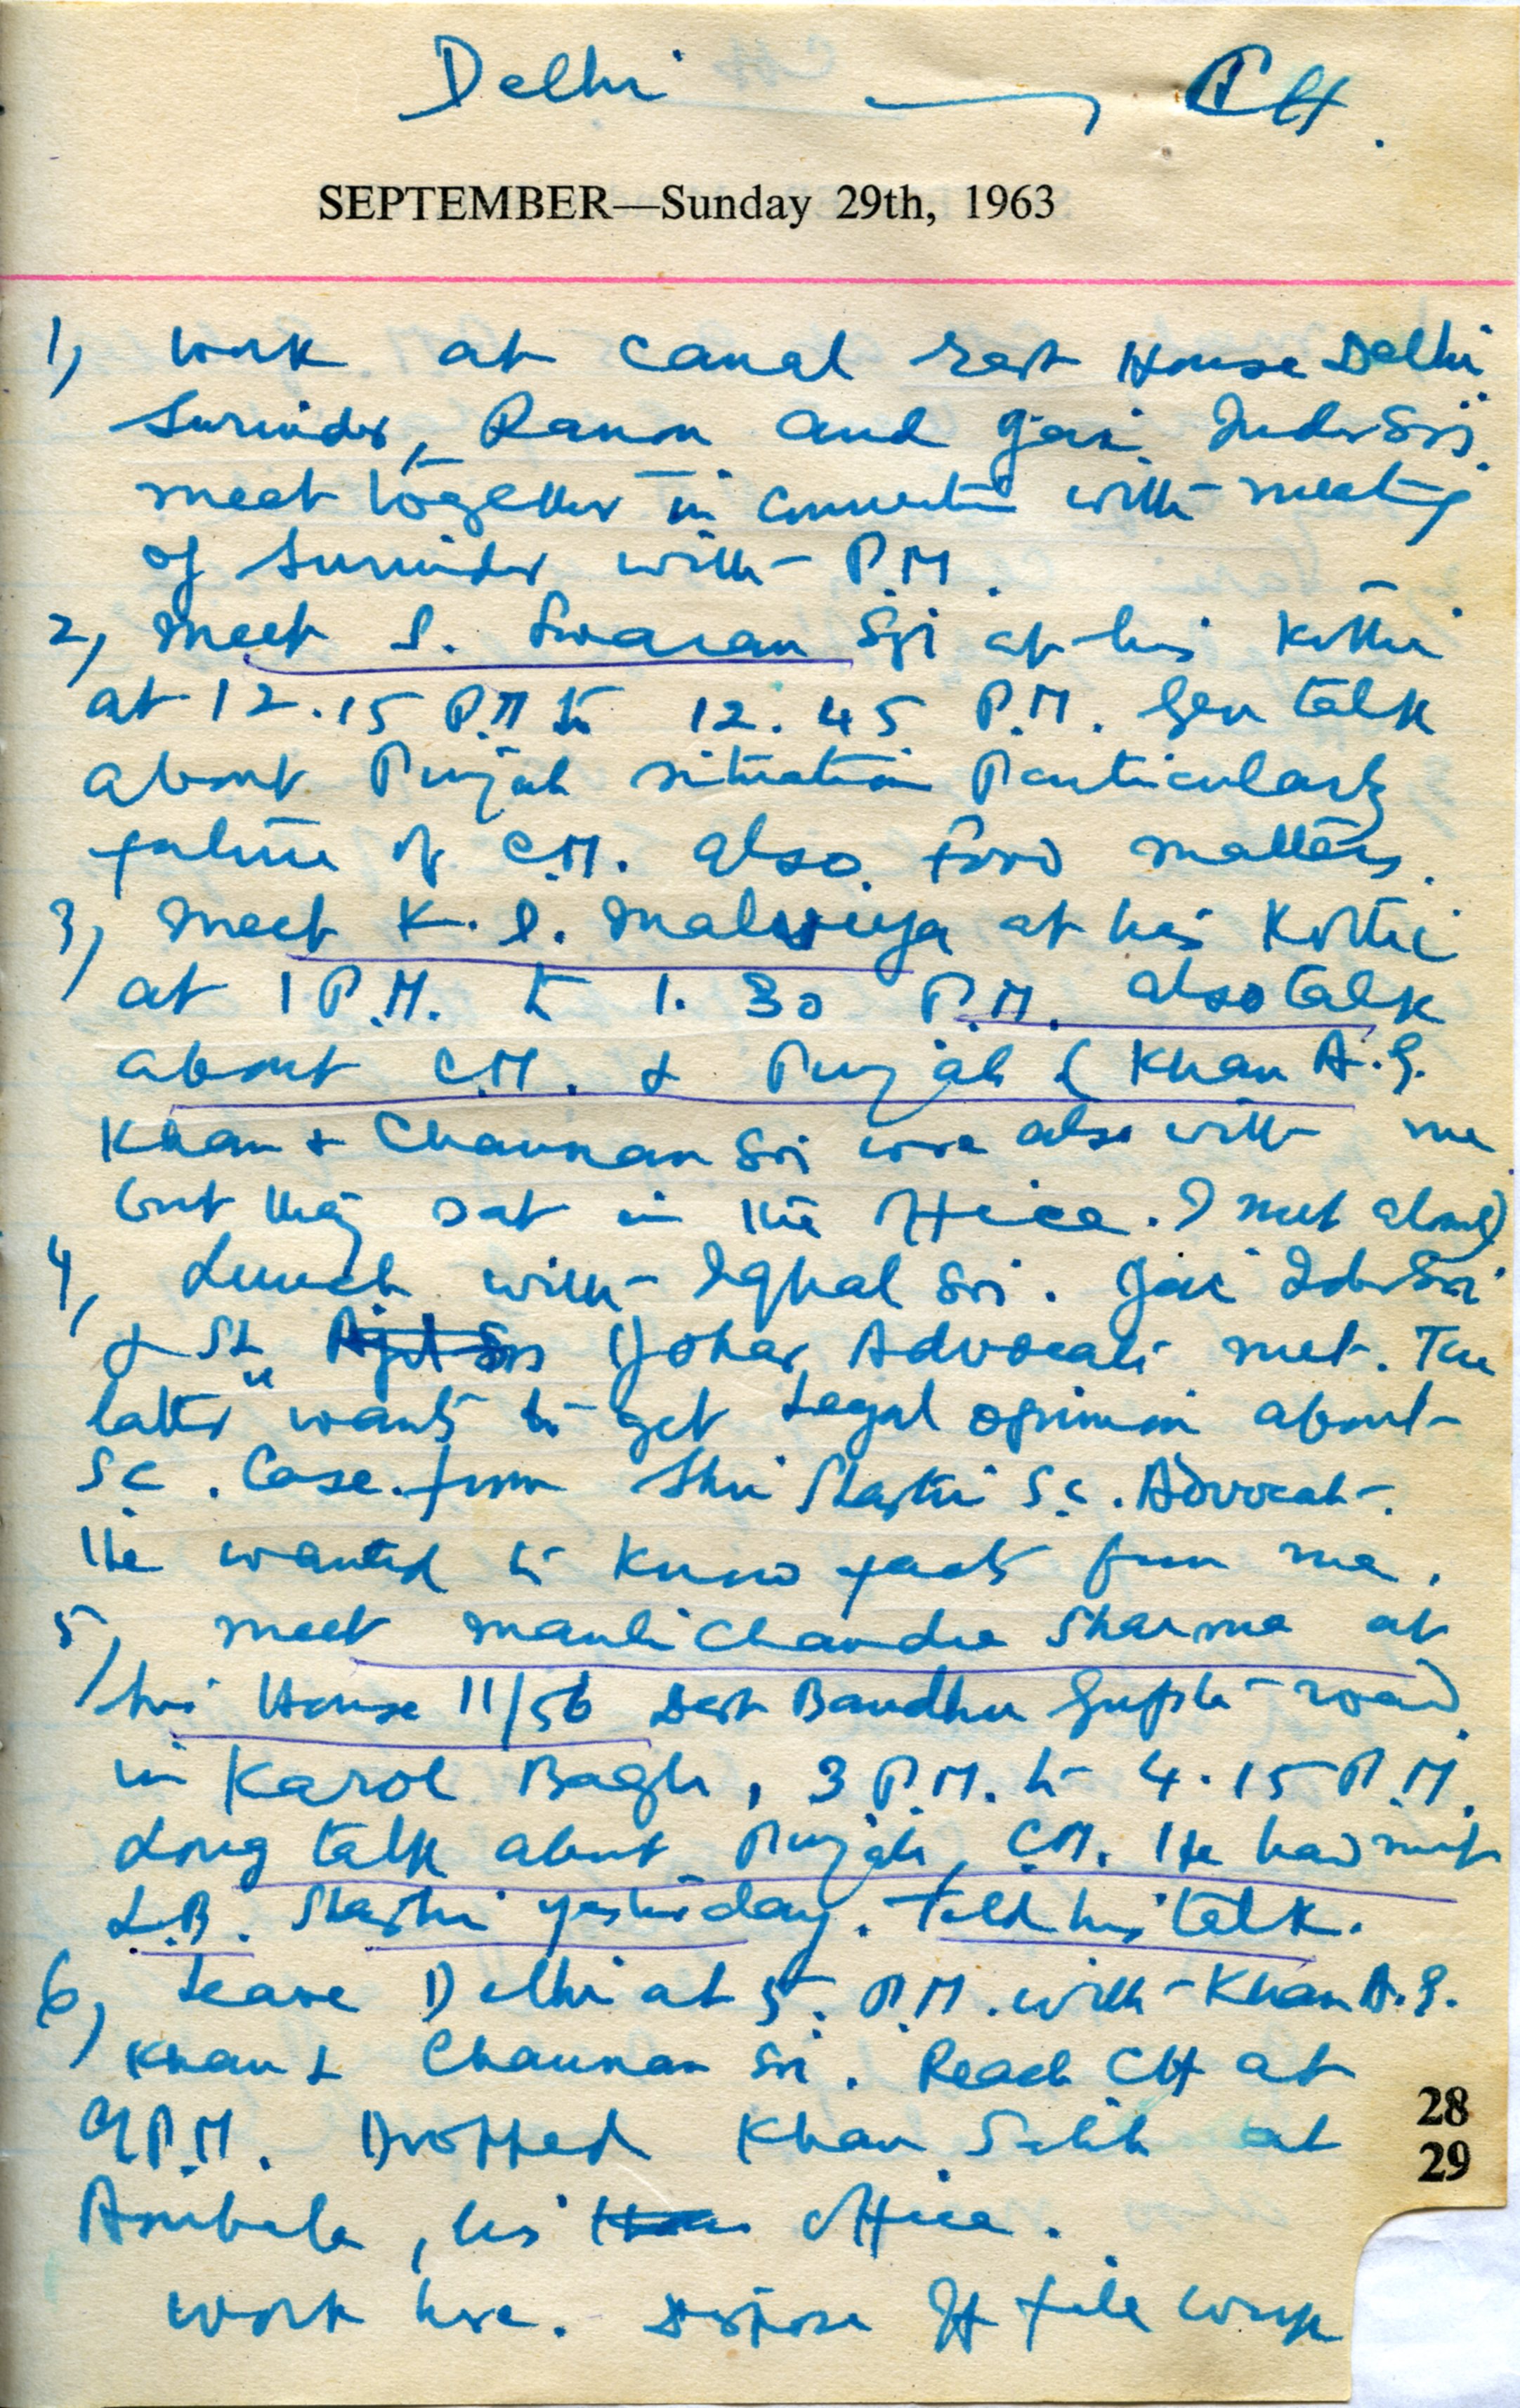 Delhi — CH.
SEPTEMBER—Sunday 29th, 1963
1, Work at Canal rest House Delhi
Surinder, Raman and Gai Inder Sri
meet together in connection with meeting
of Surinder with P.M.
2, meet S. Swaran Sri at his Kothi
at 12.15 P.M to 12.45 P.M. Gen talk
about Punjab situation Particularly
future of C.M. also Food matters.
3, meet K. D. Malviya at his Kothi
at 1 P.M. to 1.30 P.M. also talk
about C.M. & Punjab (Khan A.G.
Khan & Chaunan Sri were also with me
but they sat in the office. I met alone)
4, Lunch with Iqbal Sri. Jai Inder Sri
& Johar Advocate met. The
latter wants to get Legal opinion about
S.C. Case from Shri Shastri S.C. Advocate.
He wanted to know facts from me.
5, meet Mauli Chandra Sharma at
his House 11/56 Desh Bandhu Gupta road
in Karol Bagh, 3 P.M. to 4.15 P.M.
Long talk about Punjab, C.M. He had met
L.B. Shastri yesterday. Told his talk.
6, Leave Delhi at 5. P.M. with Khan A.G.
Khan & Chaunan Sri. Reach CH at
9 P.M. Dropped Khan Sahib at
Ambala, his office.
work here. Dispose of file work
28
29